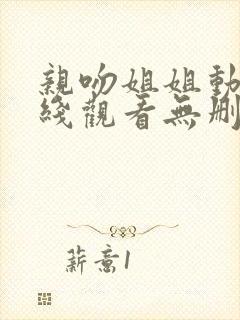 親吻姐姐動
綫觀看無刪
薪意1